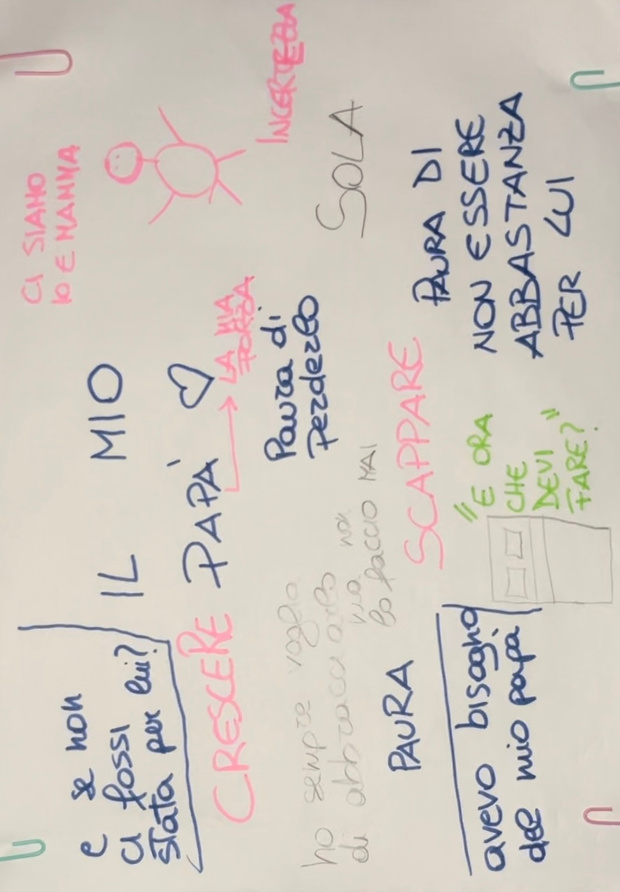 e se non
ci fossi
stata per lui?
IL MIO
PAPÀ
CI SIAMO
IO E MAMMA
CRESCERE
LA MIA
FORZA
INCERTEZZA
ho sempre voglia
di abbracciarlo
ma non
lo faccio MAI
Paura di
perderlo
SOLA
PAURA
SCAPPARE
PAURA DI
NON ESSERE
ABBASTANZA
PER LUI
avevo bisogno
del mio papà
"E ORA
CHE
DEVI
FARE?"